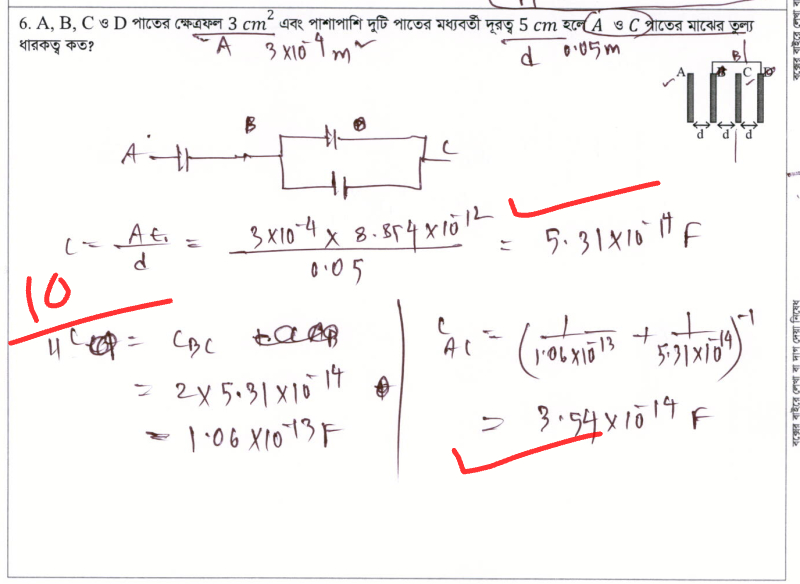 6. A, B, C ও D পাতের ক্ষেত্রফল 3 cm² এবং পাশাপাশি দুটি পাতের মধ্যবর্তী দূরত্ব 5 cm হলে A ও C পাতের মাঝের তুল্য
ধারকত্ব কত?
A 3×10⁻⁴ m² d 0.05m
B
A B C D
d d d
A B C
C = A ε₀ / d = 3×10⁻⁴ × 8.854×10⁻¹² / 0.05 = 5.31×10⁻¹⁴ F
10
C = C_BC
= 2 × 5.31×10⁻¹⁴
= 1.06 ×10⁻¹³ F
C_AC = (1/1.06×10⁻¹³ + 1/5.31×10⁻¹⁴)⁻¹
= 3.54 ×10⁻¹⁴ F